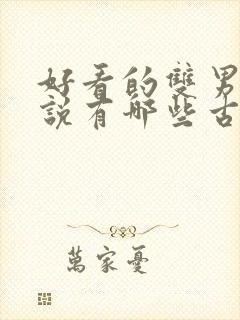 好看的雙男
說有哪些古
萬家憂